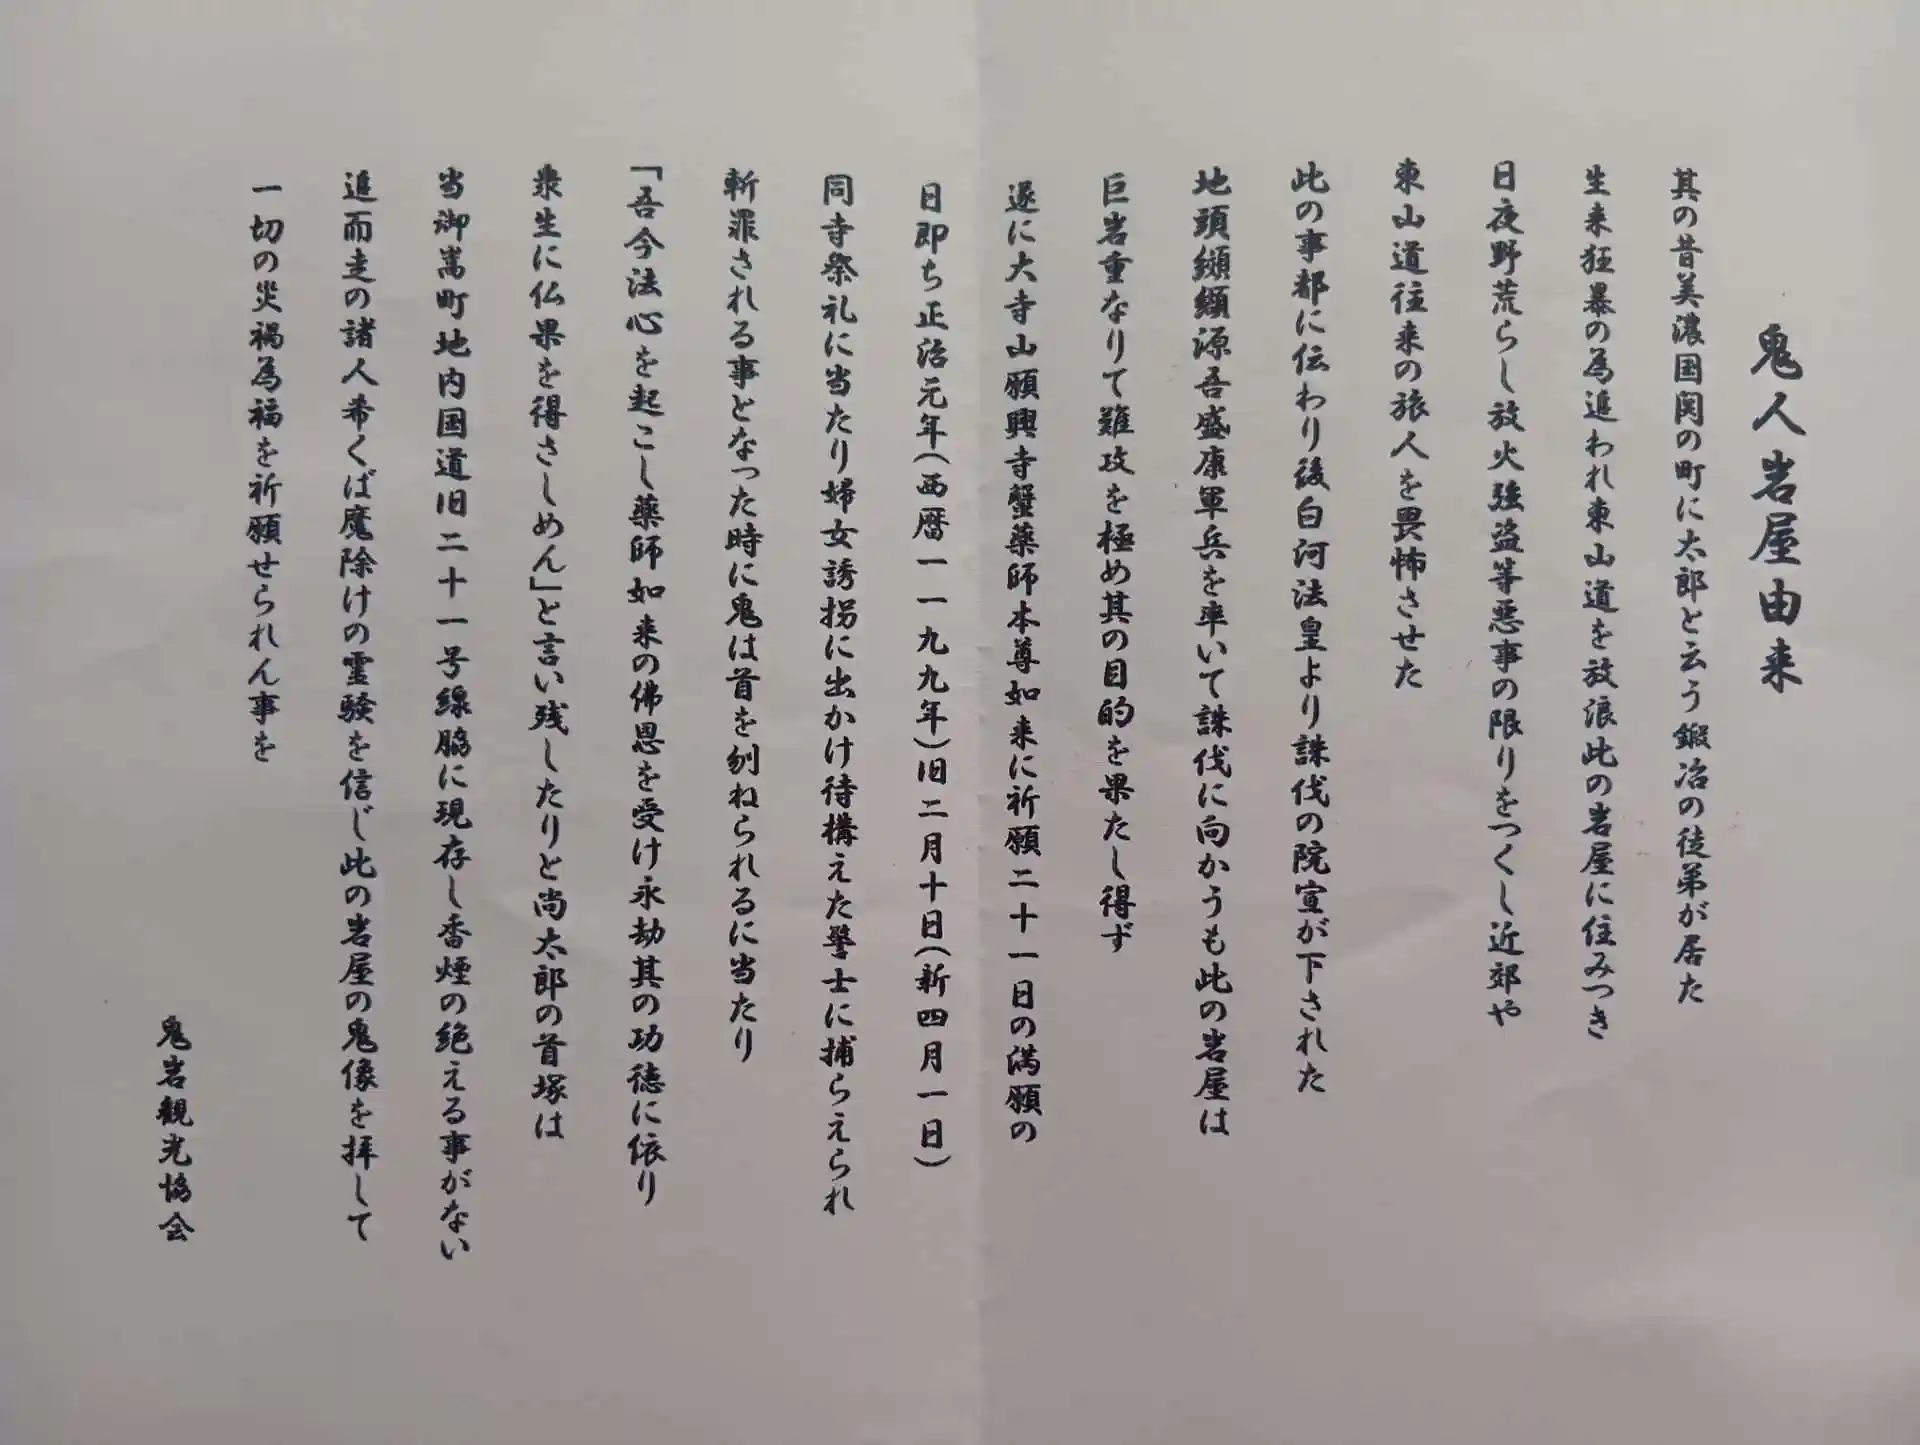 鬼人岩屋由来
其の昔美濃国関の町に太郎と云う鍛冶の徒弟が居た
生来狂暴の為追われ東山道を放浪此の岩屋に住みつき
日夜野荒らし放火強盗等悪事の限りをつくし近郊や
東山道往来の旅人を畏怖させた
此の事都に伝わり後白河法皇より誅伐の院宣が下された
地頭纐纈源吾盛康軍兵を率いて誅伐に向かうも此の岩屋は
巨岩重なりて難攻を極め其の目的を果たし得ず
遂に大寺山願興寺蟹薬師本尊如来に祈願二十一日の満願の
日即ち正治元年(西暦一一九九年)旧二月十日(新四月一日)
同寺祭礼に当たり婦女誘拐に出かけ待構えた警士に捕らえられ
斬罪される事となった時に鬼は首を刎ねられるに当たり
「吾今法心を起こし薬師如来の佛恩を受け永劫其の功徳に依り
衆生に仏果を得さしめん」と言い残したりと尚太郎の首塚は
当御嵩町地内国道旧二十一号線脇に現存し香煙の絶える事がない
追而走の諸人希くば魔除けの霊験を信じ此の岩屋の鬼像を拝して
一切の災禍為福を祈願せられん事を
鬼岩観光協会